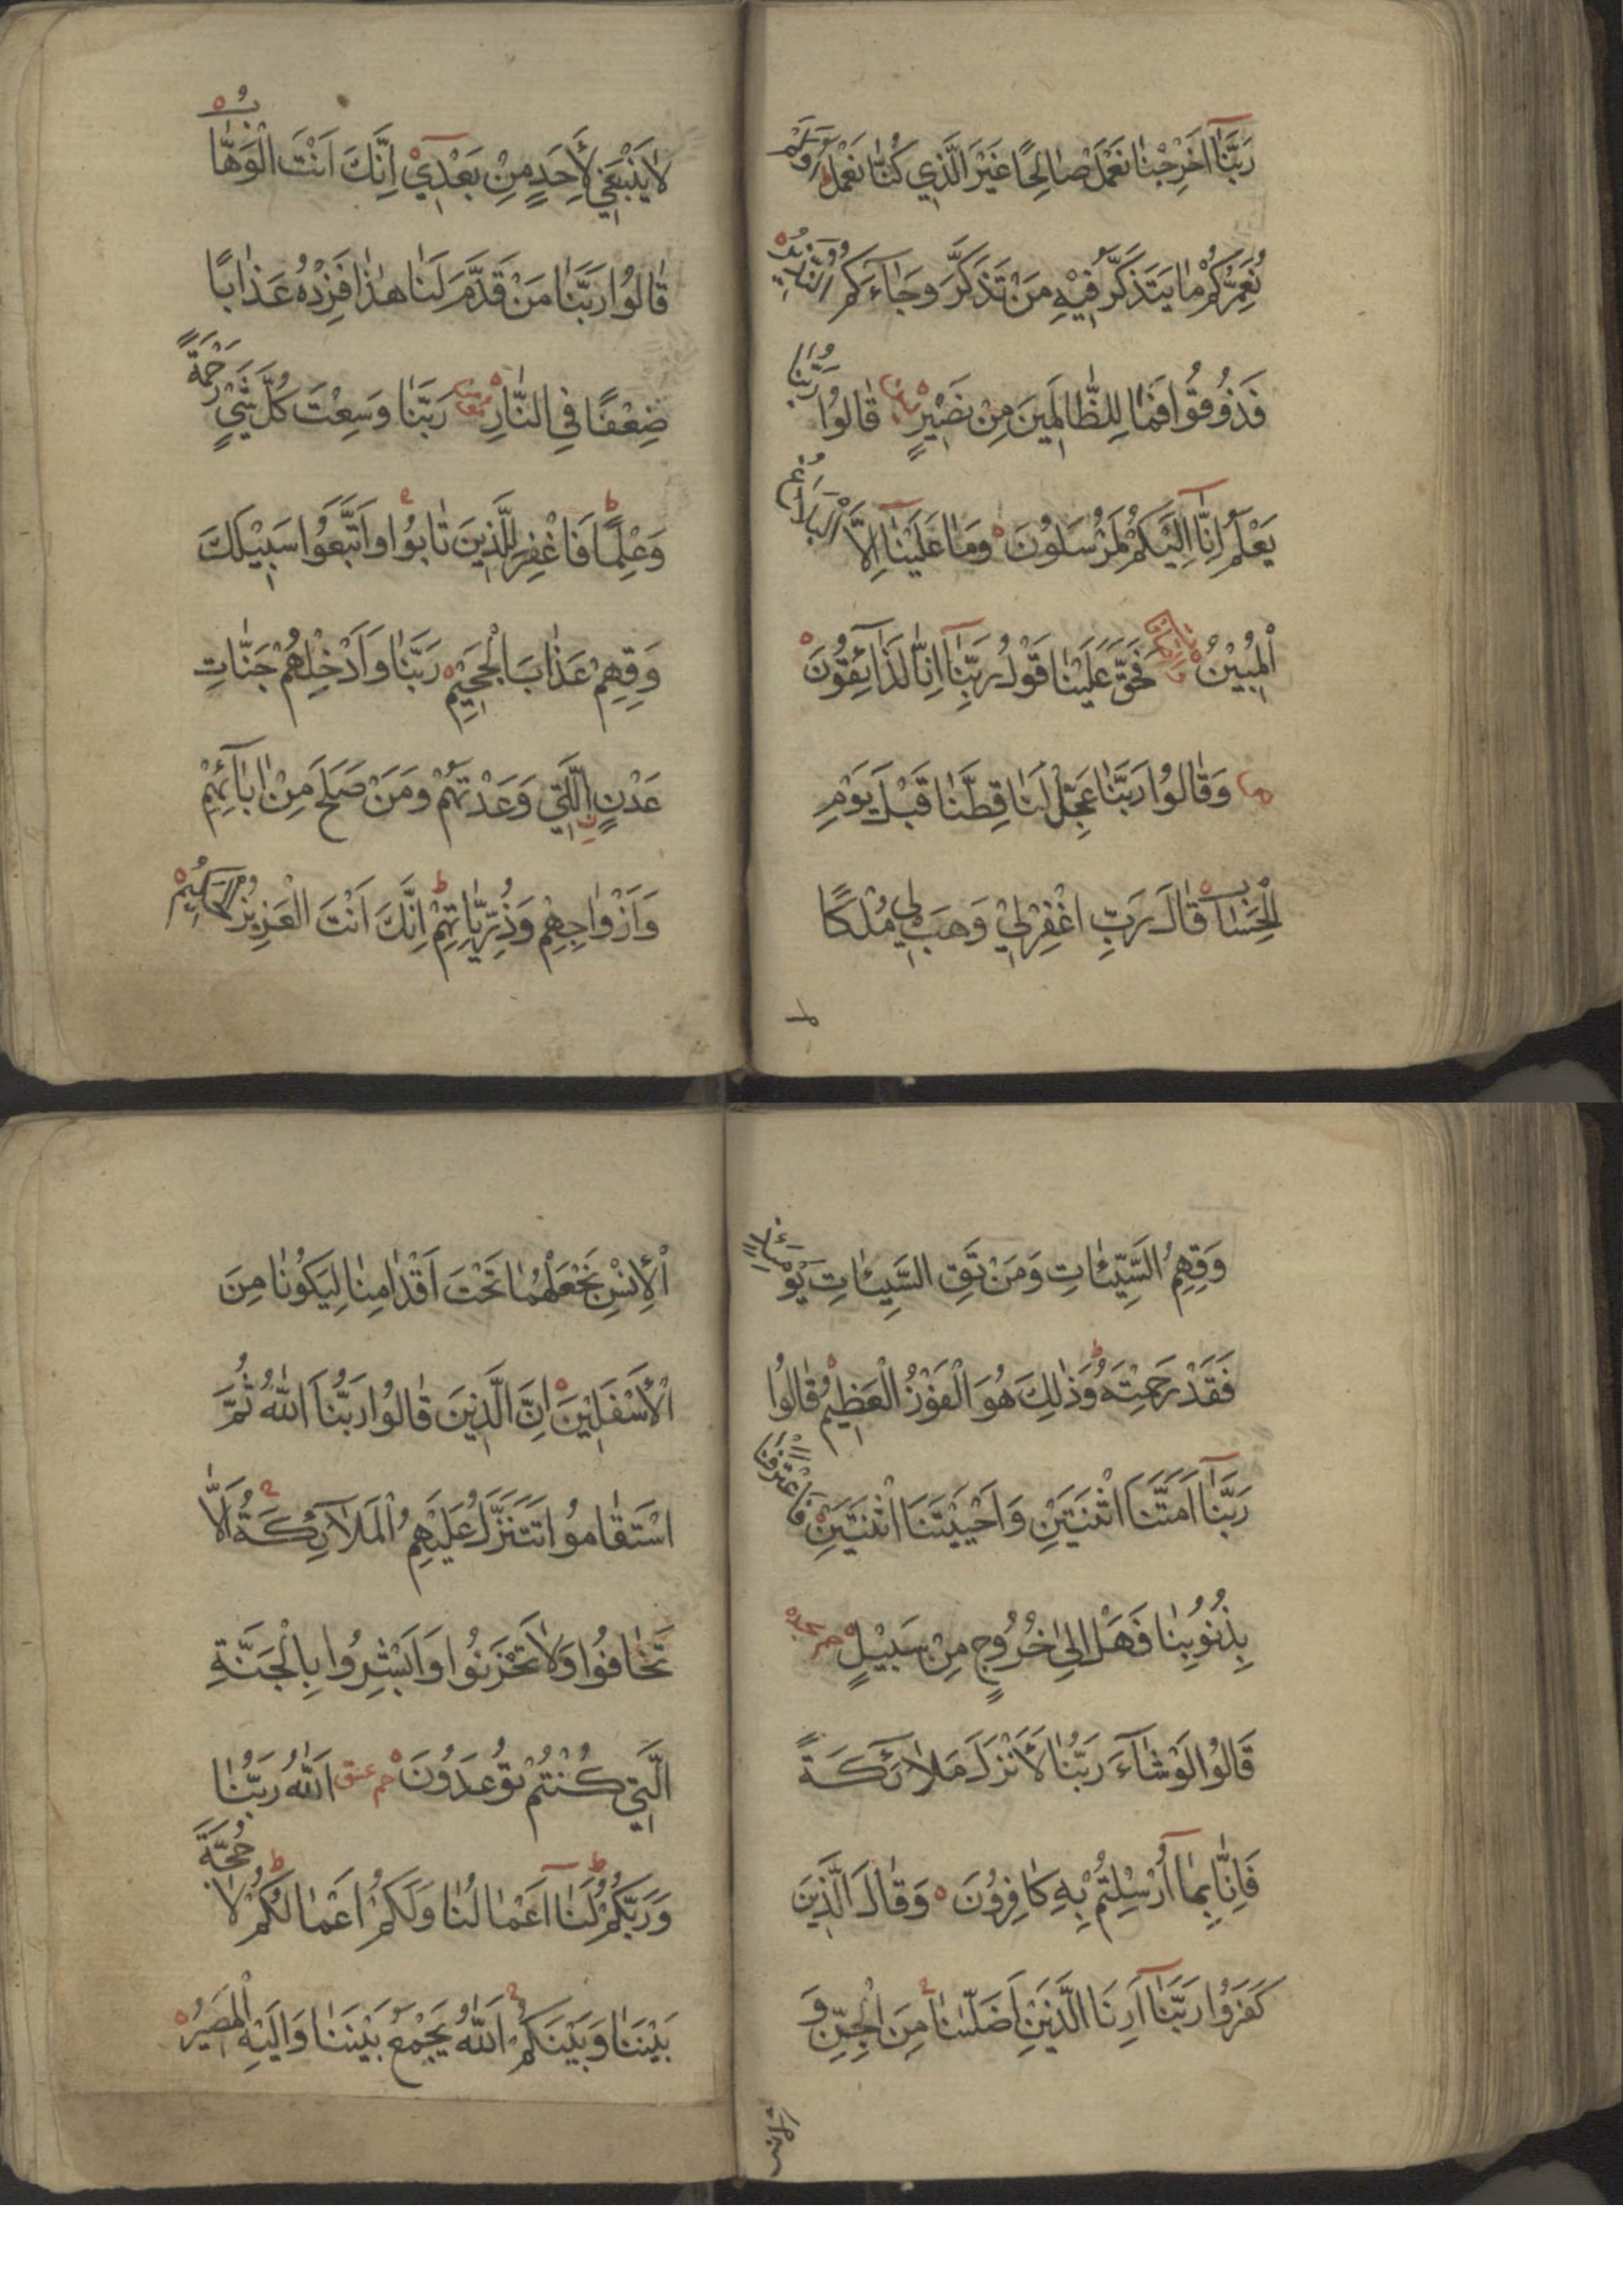 رَبَّنَا اَخْرِجْنَا نَعْمَلْ صَالِحًا غَيْرَ الَّذِي كُنَّا نَعْمَلُ اَوَلَمْ
نُعَمِّرْكُمْ مَا يَتَذَكَّرُ فِيْهِ مَنْ تَذَكَّرَ وَجَاءَكُمُ النَّذِيْرُ
فَذُوْقُوْا فَمَا لِلظَّالِمِيْنَ مِنْ نَصِيْرٍ قَالُوْا رَبُّنَا
يَعْلَمُ اِنَّا اِلَيْكُمْ لَمُرْسَلُوْنَ وَمَا عَلَيْنَا اِلَّا الْبَلَاغُ
الْمُبِيْنُ فَحَقَّ عَلَيْنَا قَوْلُ رَبِّنَا اِنَّا لَذَائِقُوْنَ
وَقَالُوْا رَبَّنَا عَجِّلْ لَنَا قِطَّنَا قَبْلَ يَوْمِ
الْحِسَابِ قَالَ رَبِّ اغْفِرْلِيْ وَهَبْ لِي مُلْكًا
لا
لَا يَنْبَغِي لِأَحَدٍ مِنْ بَعْدِيْ اِنَّكَ اَنْتَ الْوَهَّابُ
قَالُوْا رَبَّنَا مَنْ قَدَّمَ لَنَا هٰذَا فَزِدْهُ عَذَابًا
ضِعْفًا فِي النَّارِ رَبَّنَا وَسِعْتَ كُلَّ شَيْءٍ رَحْمَةً
وَعِلْمًا فَاغْفِرْ لِلَّذِيْنَ تَابُوْا وَاتَّبَعُوْا سَبِيْلَكَ
وَقِهِمْ عَذَابَ الْجَحِيْمِ رَبَّنَا وَاَدْخِلْهُمْ جَنَّاتِ
عَدْنٍ الَّتِي وَعَدْتَهُمْ وَمَنْ صَلَحَ مِنْ اٰبَائِهِمْ
وَاَزْوَاجِهِمْ وَذُرِّيَّاتِهِمْ اِنَّكَ اَنْتَ الْعَزِيْزُ الْحَكِيْمُ
وَقِهِمُ السَّيِّئَاتِ وَمَنْ تَقِ السَّيِّئَاتِ يَوْمَئِذٍ
فَقَدْ رَحِمْتَهُ وَذٰلِكَ هُوَ الْفَوْزُ الْعَظِيْمُ قَالُوْا
رَبَّنَا اَمَتَّنَا اثْنَتَيْنِ وَاَحْيَيْتَنَا اثْنَتَيْنِ فَاعْتَرَفْنَا
بِذُنُوْبِنَا فَهَلْ اِلٰى خُرُوْجٍ مِنْ سَبِيْلٍ حم سجده
قَالُوْا لَوْ شَاءَ رَبُّنَا لَأَنْزَلَ مَلَائِكَةً
فَاِنَّا بِمَا اُرْسِلْتُمْ بِهِ كَافِرُوْنَ وَقَالَ الَّذِيْنَ
كَفَرُوْا رَبَّنَا اَرِنَا الَّذَيْنِ اَضَلَّانَا مِنَ الْجِنِّ وَ
الْاِنْسِ نَجْعَلْهُمَا تَحْتَ اَقْدَامِنَا لِيَكُوْنَا مِنَ
الْاَسْفَلِيْنَ اِنَّ الَّذِيْنَ قَالُوْا رَبُّنَا اللّٰهُ ثُمَّ
اسْتَقَامُوا تَتَنَزَّلُ عَلَيْهِمُ الْمَلَائِكَةُ اَلَّا
تَخَافُوْا وَلَا تَحْزَنُوْا وَاَبْشِرُوْا بِالْجَنَّةِ
الَّتِي كُنْتُمْ تُوْعَدُوْنَ حم عسق اَللّٰهُ رَبُّنَا
وَرَبُّكُمْ لَنَا اَعْمَالُنَا وَلَكُمْ اَعْمَالُكُمْ لَا حُجَّةَ
بَيْنَنَا وَبَيْنَكُمْ اَللّٰهُ يَجْمَعُ بَيْنَنَا وَاِلَيْهِ الْمَصِيْرُ